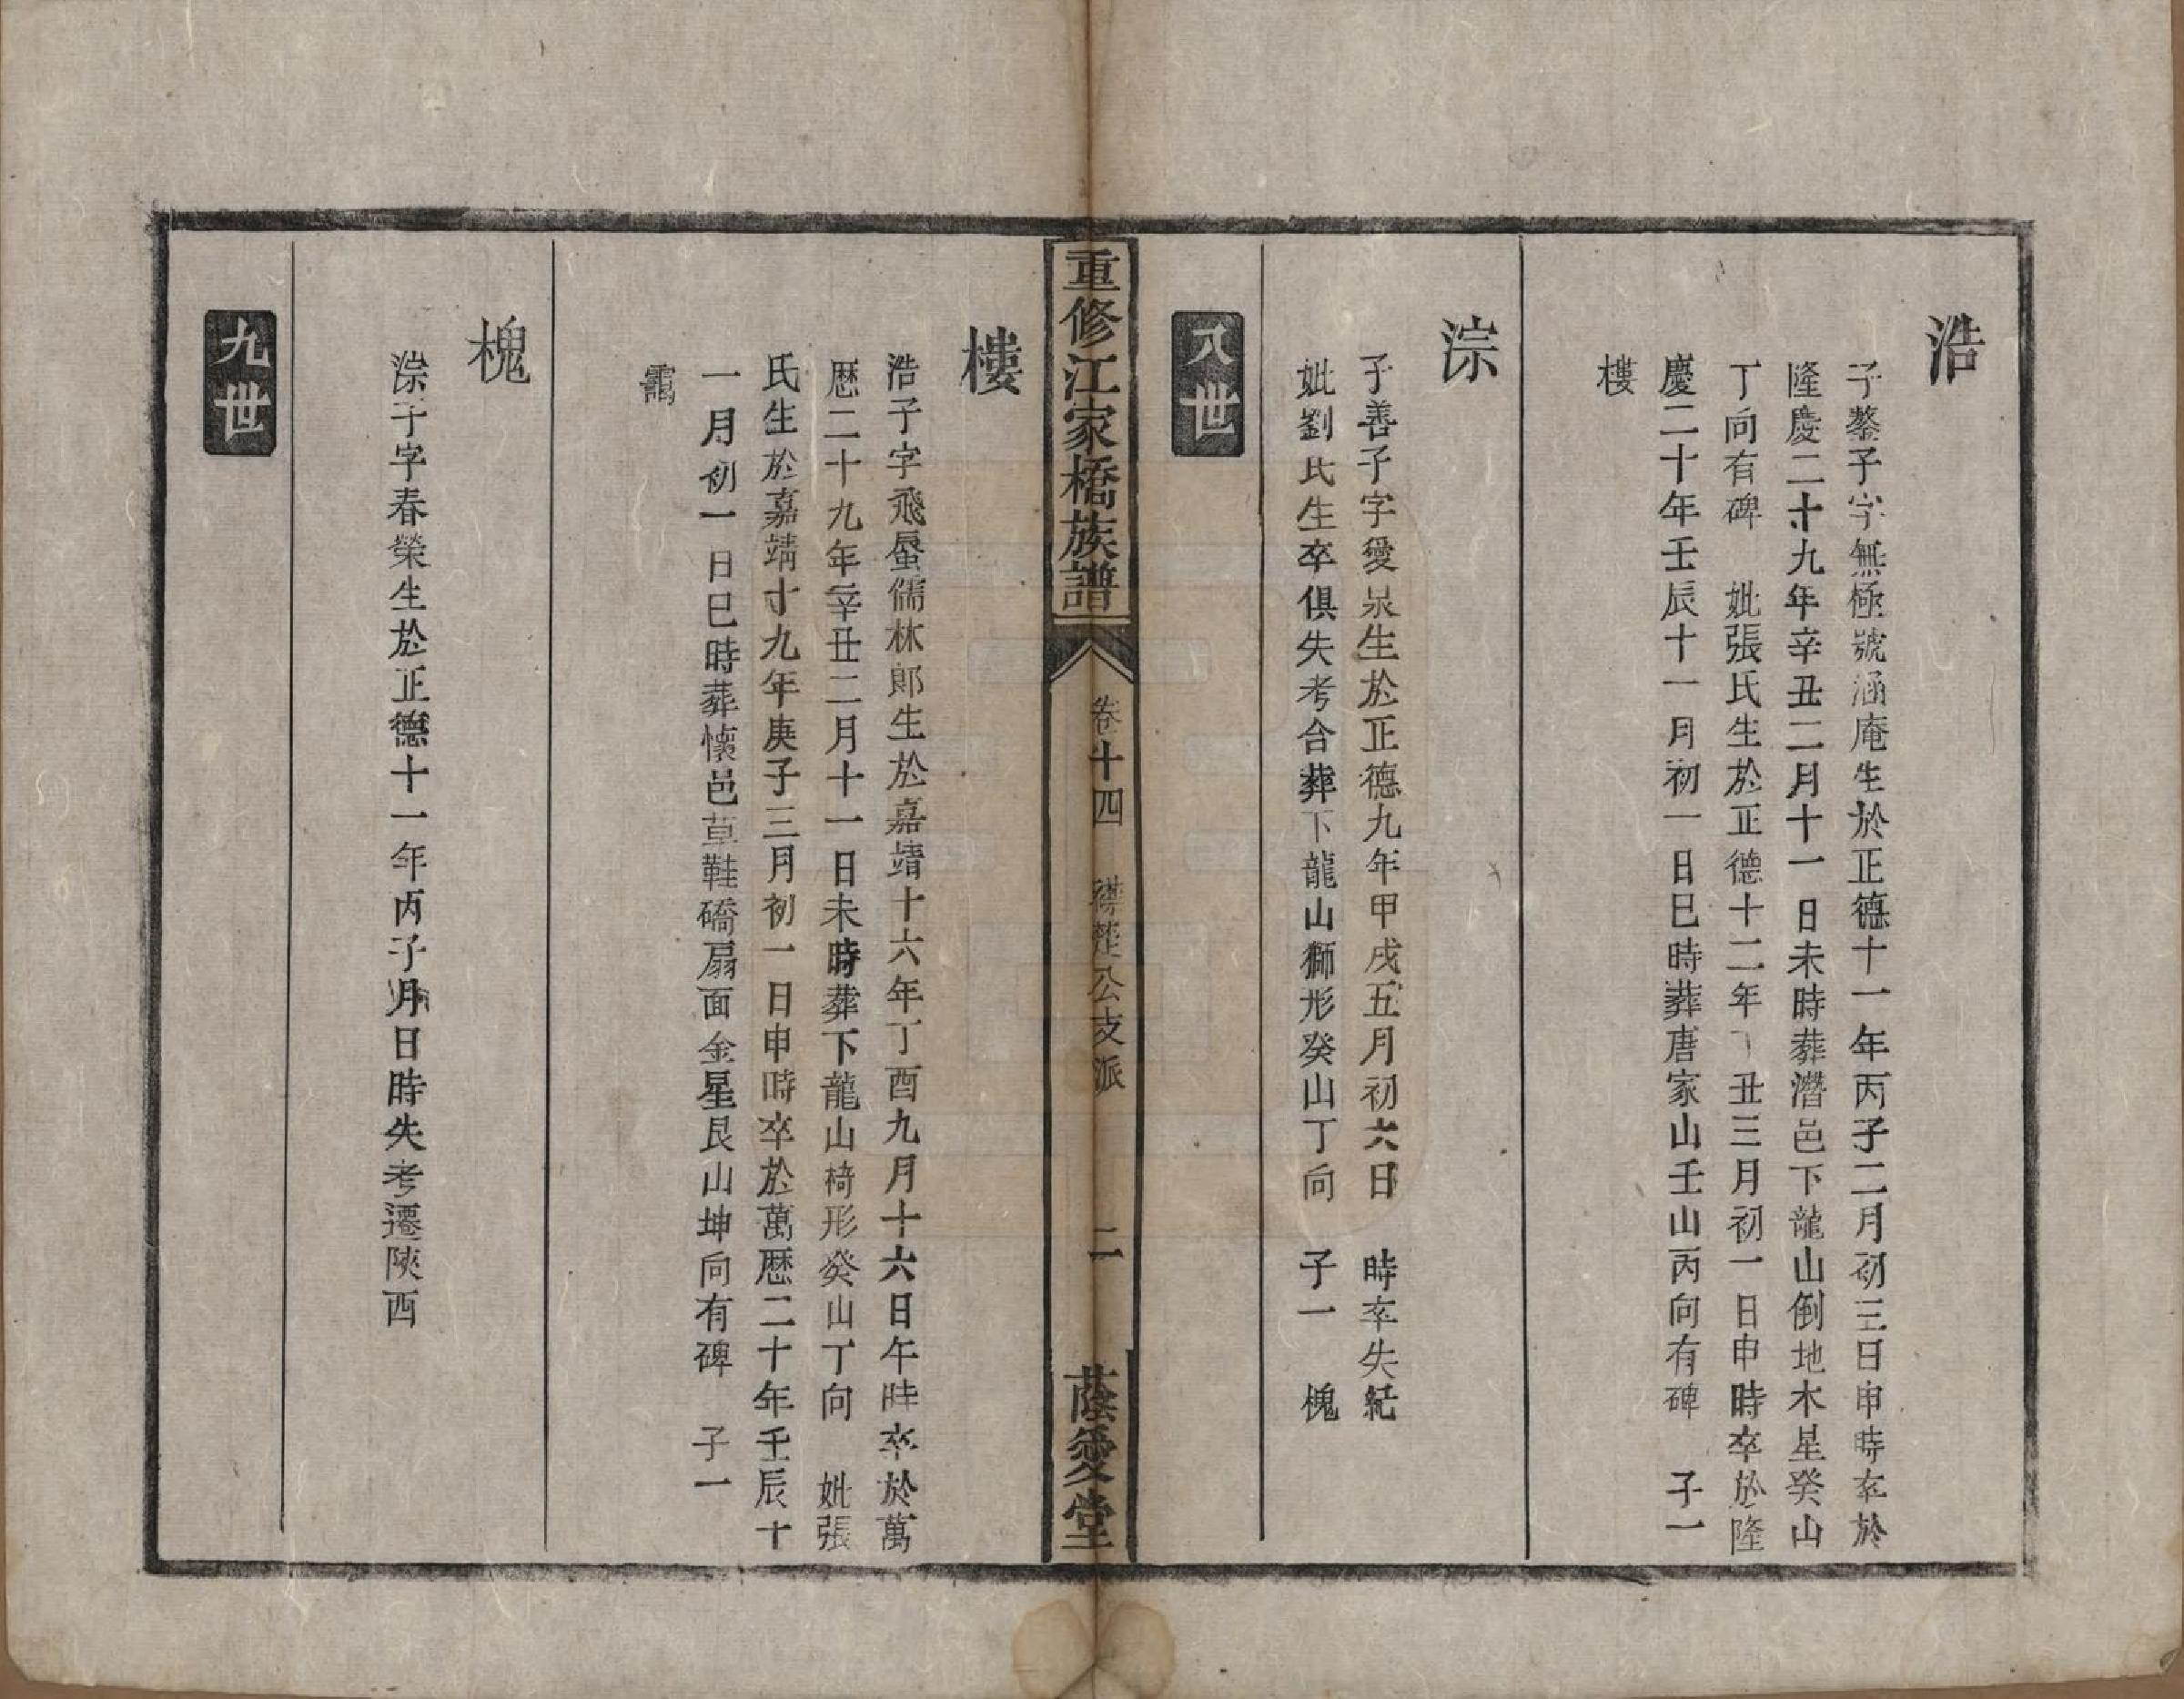 浩
子鏊子字無極號涵庵生於正德十一年丙子二月初三日申時卒於
隆慶二十九年辛丑二月十一日未時葬潛邑下龍山倒地木星癸山
丁向有碑　妣張氏生於正德十二年丁丑三月初一日申時卒於隆
慶二十年壬辰十一月初一日巳時葬唐家山壬山丙向有碑　子一
樓
淙
子善子字愛泉生於正德九年甲戌五月初六日　時卒失紀
妣劉氏生卒俱失考合葬下龍山獅形癸山丁向　子一　槐
八世
重修江家橋族譜　卷十四　公支派　二　蔭愛堂
樓
浩子字飛蜃儒林郎生於嘉靖十六年丁酉九月十六日午時卒於萬
歷二十九年辛丑二月十一日未時葬下龍山椅形癸山丁向　妣張
氏生於嘉靖十九年庚子三月初一日申時卒於萬歷二十年壬辰十
一月初一日巳時葬懷邑草鞋礄扇面金星艮山坤向有碑　子一
靄
槐
淙子字春榮生於正德十一年丙子月日時失考遷陝西
九世